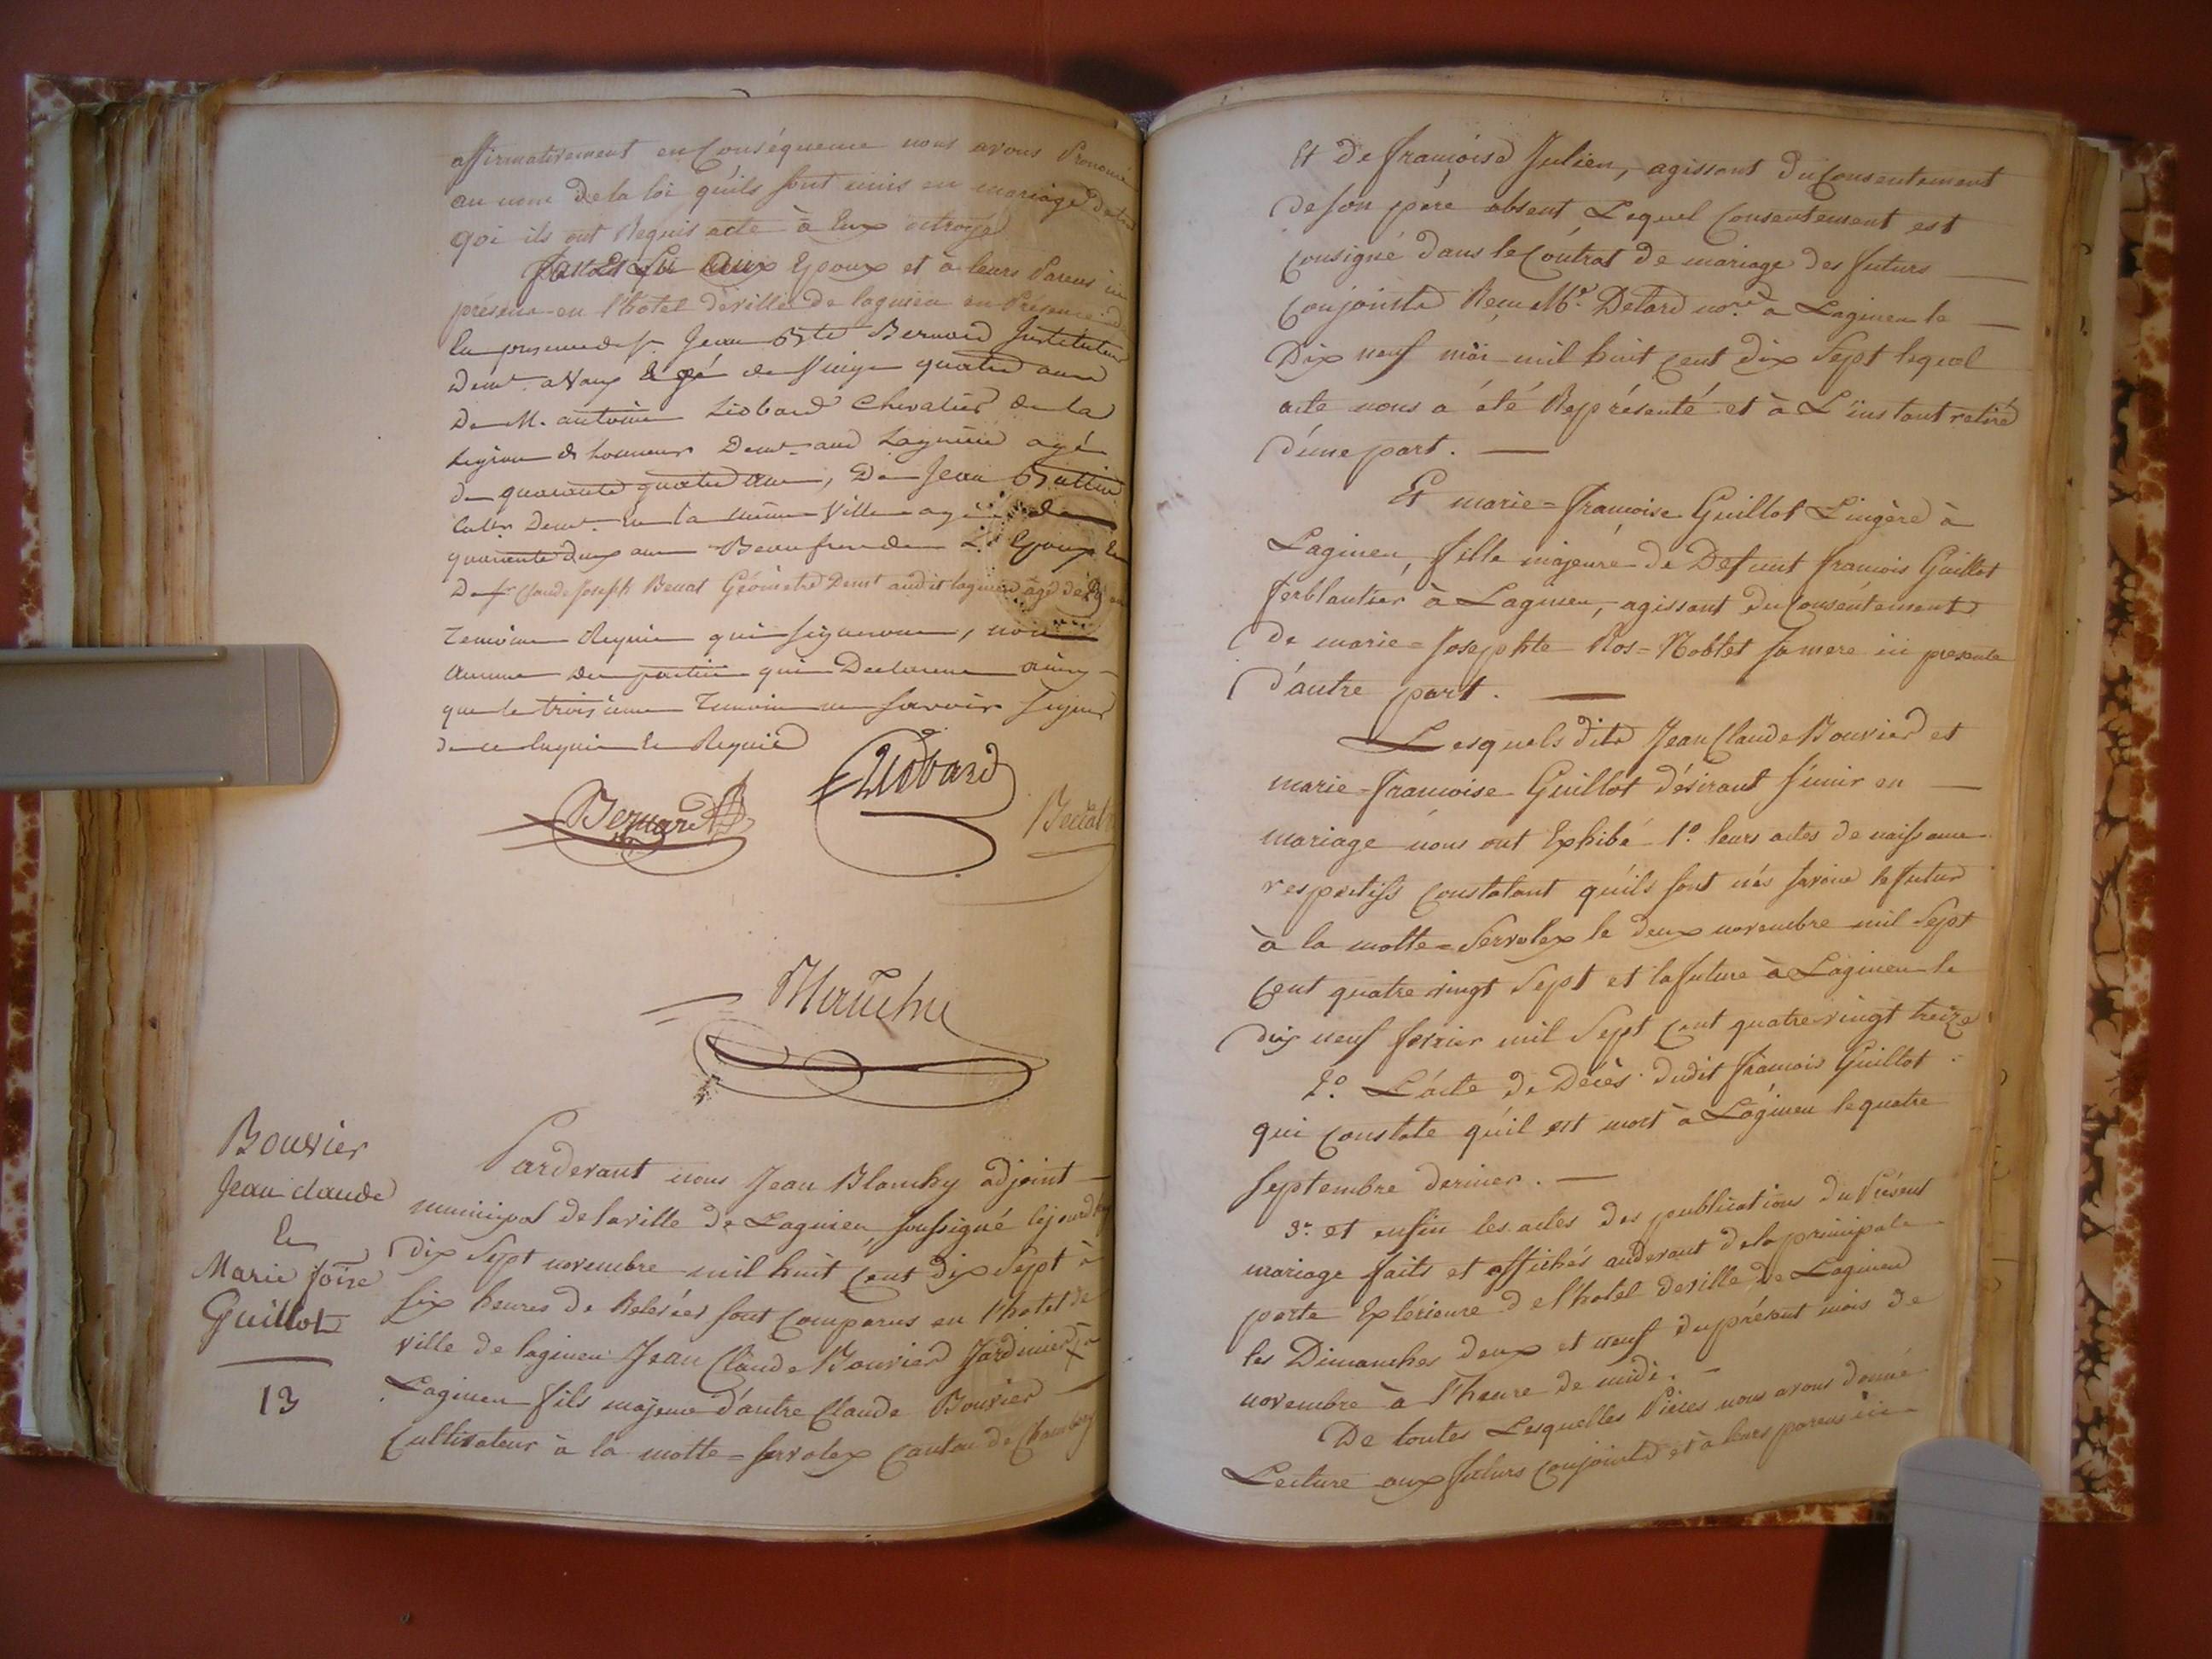 affirmativement en Conséquence nous avons Prononcé
au nom de la loi qu'ils sont unis en mariage de tout
qoi ils ont Requis acte à Eux octroyé
Fait Et Lu aux Epoux et à leurs Parens ici
présens en l'hotel deville de lagnieu en Présence de
En presence de sr. Jean Bte Bernard Instituteur
Demt. a Vaux agé de vingt quatre ans
De M. antoine Liobard Chevalier de la
Legion d honneur Demt. aud Lagnieu agé
de quarante quatre ans, De Jean Buttin
Cultr. Demt. en la même Ville agé de
quarante deux ans Beaufrere de L'Epoux Et
De sr Claude Joseph Beccat Géomètre Demt audit lagnieu âgé de
Temoins Requis qui signeront, non
aucune des parties qui Declarent ainsy
que le troisième Temoin ne savoir signer
de ce Enquis Et Requis
Bernard
Liobard
Beccat
Blanchy
Bouvier
Jean claude
Et
Marie foise
Guillot
13
Pardevant nous Jean Blanchy adjoint
municipal de la ville de Lagnieu, soussigné cejourd'huy
Dix Sept novembre mil huit Cent Dix Sept à
six heures de Relevées sont Comparus en l'hotel de
ville de lagnieu Jean Claude Bouvier Jardinier à
Lagnieu fils majeur d'autre Claude Bouvier
Cultivateur à la motte=servolex Canton de Chambery
Et De françoise Julien, agissant Du Consentement
de son père absent, Lequel Consentement est
Consigné dans le Contrat de mariage des futurs
Conjoints Reçu Me. Detard nore. à Lagnieu le
Dix neuf mai mil huit Cent dix Sept lequel
acte nous a été Représenté et à L'instant retiré
d'une part.
Et marie=françoise Guillot Lingère à
Lagnieu, fille majeure de Defunt françois Guillot
ferblantier à Lagnieu, agissant Du Consentement
de marie=Josephte Ros=Noblet sa mere ici presente
d'autre part.
Lesquels dits Jean Claude Bouvier et
marie=françoise Guillot désirant s'unir en
mariage nous ont Exhibé 1o. leurs actes de naissance
respectifs Constatant qu'ils sont nés savoir le futur
à la motte=Servolex le deux novembre mil Sept
Cent quatre vingt Sept et la future à Lagnieu le
dix neuf février mil Sept Cent quatre vingt treize
2o. L'acte de Décès dudit françois Guillot
qui Constate qu'il est mort à Lagnieu le quatre
Septembre dernier.
3o. et enfin les actes des publications du Présent
mariage faits et affichés audevant de la principale
porte Extérieure de l'hotel deville de Lagnieu
les Dimanches deux et neuf du présent mois de
novembre à l'heure de midi.
De toutes Lesquelles Pièces nous avons donné
Lecture aux futurs Conjoints et à leurs parens ici